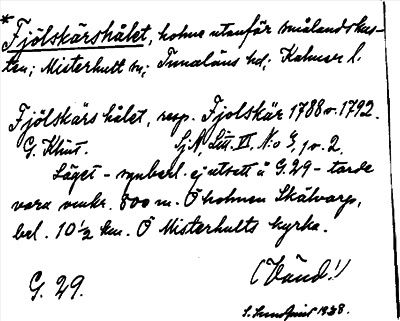 * Fjölskärshålet, holme utanför smålandskus-
ten; Misterhult sn; Tunaläns hd; Kalmar l.
Fjölskärs hålet, resp. Fjolskär 1788 o. 1792.
G. Klint. Sj.N, Litt. II, N:o 3, 1 o. 2.
Läget - synberl. ej utsatt å G. 29 - torde
vara omkr. 800 m. Ö holmen Skälvarp,
bel. 10 ½ km. Ö Misterhults kyrka.
G. 29. (Vänd!)
S. Lundqvist 1928.